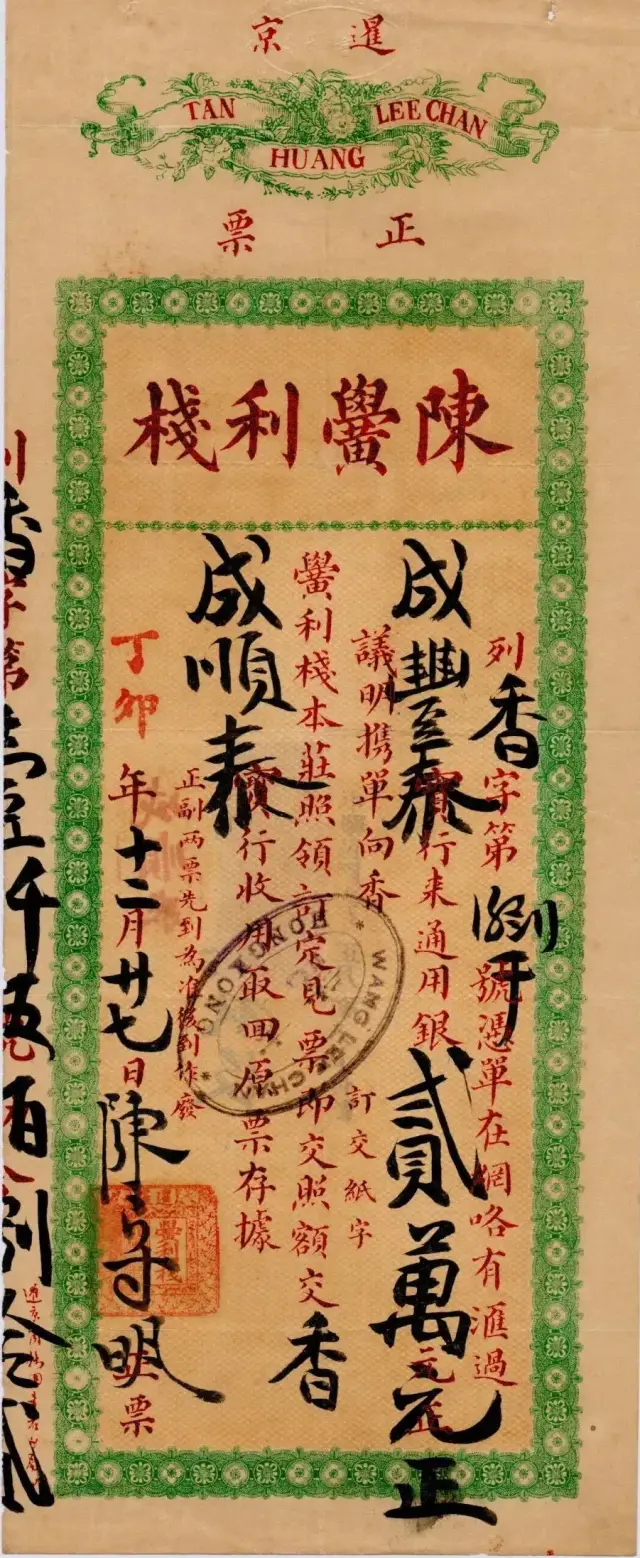 暹京
TAN LEE CHAN
HUANG
正票
陳黌利棧
列香字第 號憑單在網咯有滙過
成豐泰寶行来通用銀貳萬元正
議明携單向香
訂交紙字
黌利棧本莊照領訂定見票即交照額交香
成順泰寶行收用取回原票存據
正副两票先到為准後到作廢
丁卯年十二月廿七日陳守明 票
HONGKONG
WANG LEE CHAN
香字第 千五百捌拾貳